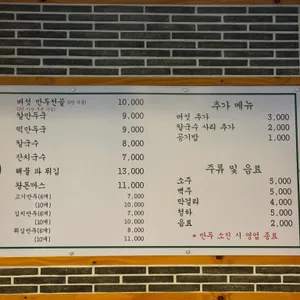 버섯 만두전골 10,000
칼만두국 9,000
떡만두국 9,000
칼국수 8,000
잔치국수 7,000
해물 파 튀김 13,000
왕돈까스 11,000
고기만두(6개) 7,000
(10개) 10,000
김치만두(6개) 7,000
(10개) 10,000
튀김만두(6개) 8,000
(10개) 11,000
추가 메뉴
버섯 추가 3,000
칼국수 사리 추가 2,000
공기밥 1,000
주류 및 음료
소주 5,000
맥주 5,000
막걸리 4,000
청하 5,000
음료 2,000
* 만두 소진 시 영업 종료